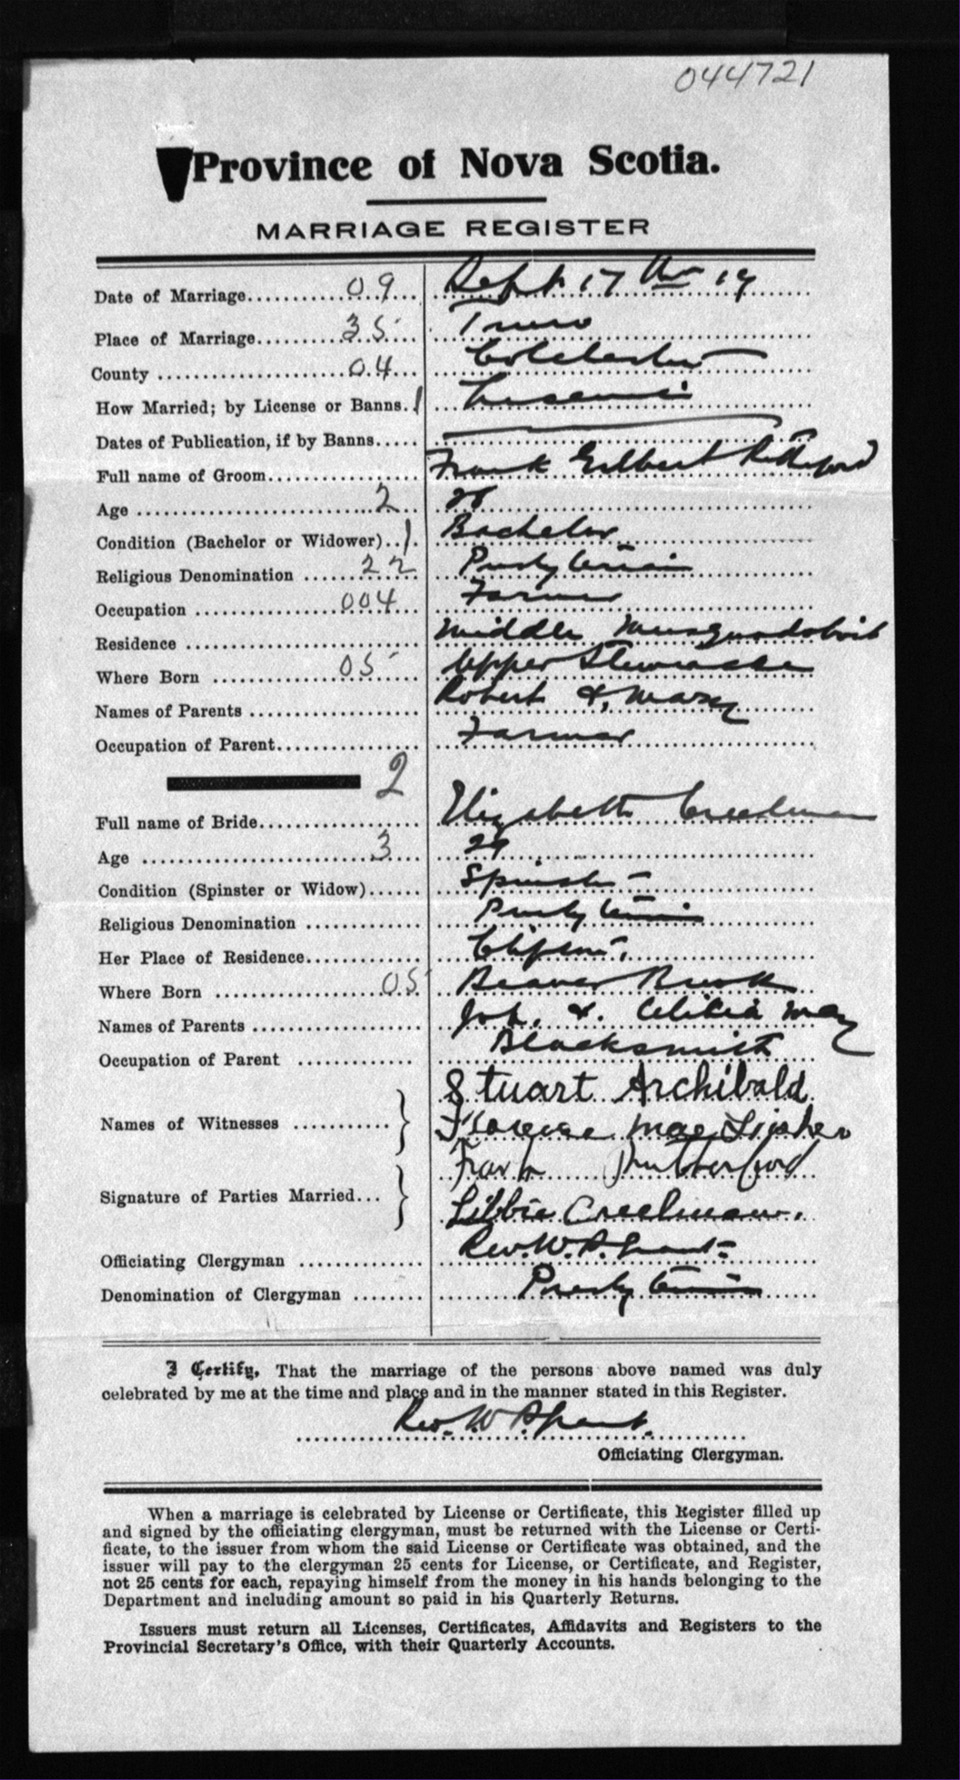 044721
Province of Nova Scotia.
MARRIAGE REGISTER
Date of Marriage 09 Sept 17th 19
Place of Marriage 35 Truro
County 04 Colchester
How Married; by License or Banns. 1 License
Dates of Publication, if by Banns
Full name of Groom Frank Gilbert Rutherford
Age 2 28
Condition (Bachelor or Widower) 1 Bachelor
Religious Denomination 22 Presbyterian
Occupation 004 Farmer
Residence Middle Musquodoboit
Where Born 05 Upper Stewiacke
Names of Parents Robert & Mary
Occupation of Parent Farmer
2
Full name of Bride Elizabeth Creelman
Age 3 29
Condition (Spinster or Widow) Spinster
Religious Denomination Presbyterian
Her Place of Residence Clifton,
Where Born 05 Beaver Brook
Names of Parents & May
Occupation of Parent Blacksmith
Stuart Archibald
Names of Witnesses Mae
Frank Rutherford
Signature of Parties Married
Libbie Creelman.
Officiating Clergyman Rev. W. P. Grant
Denomination of Clergyman Presbyterian
I Certify, That the marriage of the persons above named was duly
celebrated by me at the time and place and in the manner stated in this Register.
Rev. W. P. Grant.
Officiating Clergyman.
When a marriage is celebrated by License or Certificate, this Register filled up
and signed by the officiating clergyman, must be returned with the License or Certi-
ficate, to the issuer from whom the said License or Certificate was obtained, and the
issuer will pay to the clergyman 25 cents for License, or Certificate, and Register,
not 25 cents for each, repaying himself from the money in his hands belonging to the
Department and including amount so paid in his Quarterly Returns.
Issuers must return all Licenses, Certificates, Affidavits and Registers to the
Provincial Secretary's Office, with their Quarterly Accounts.